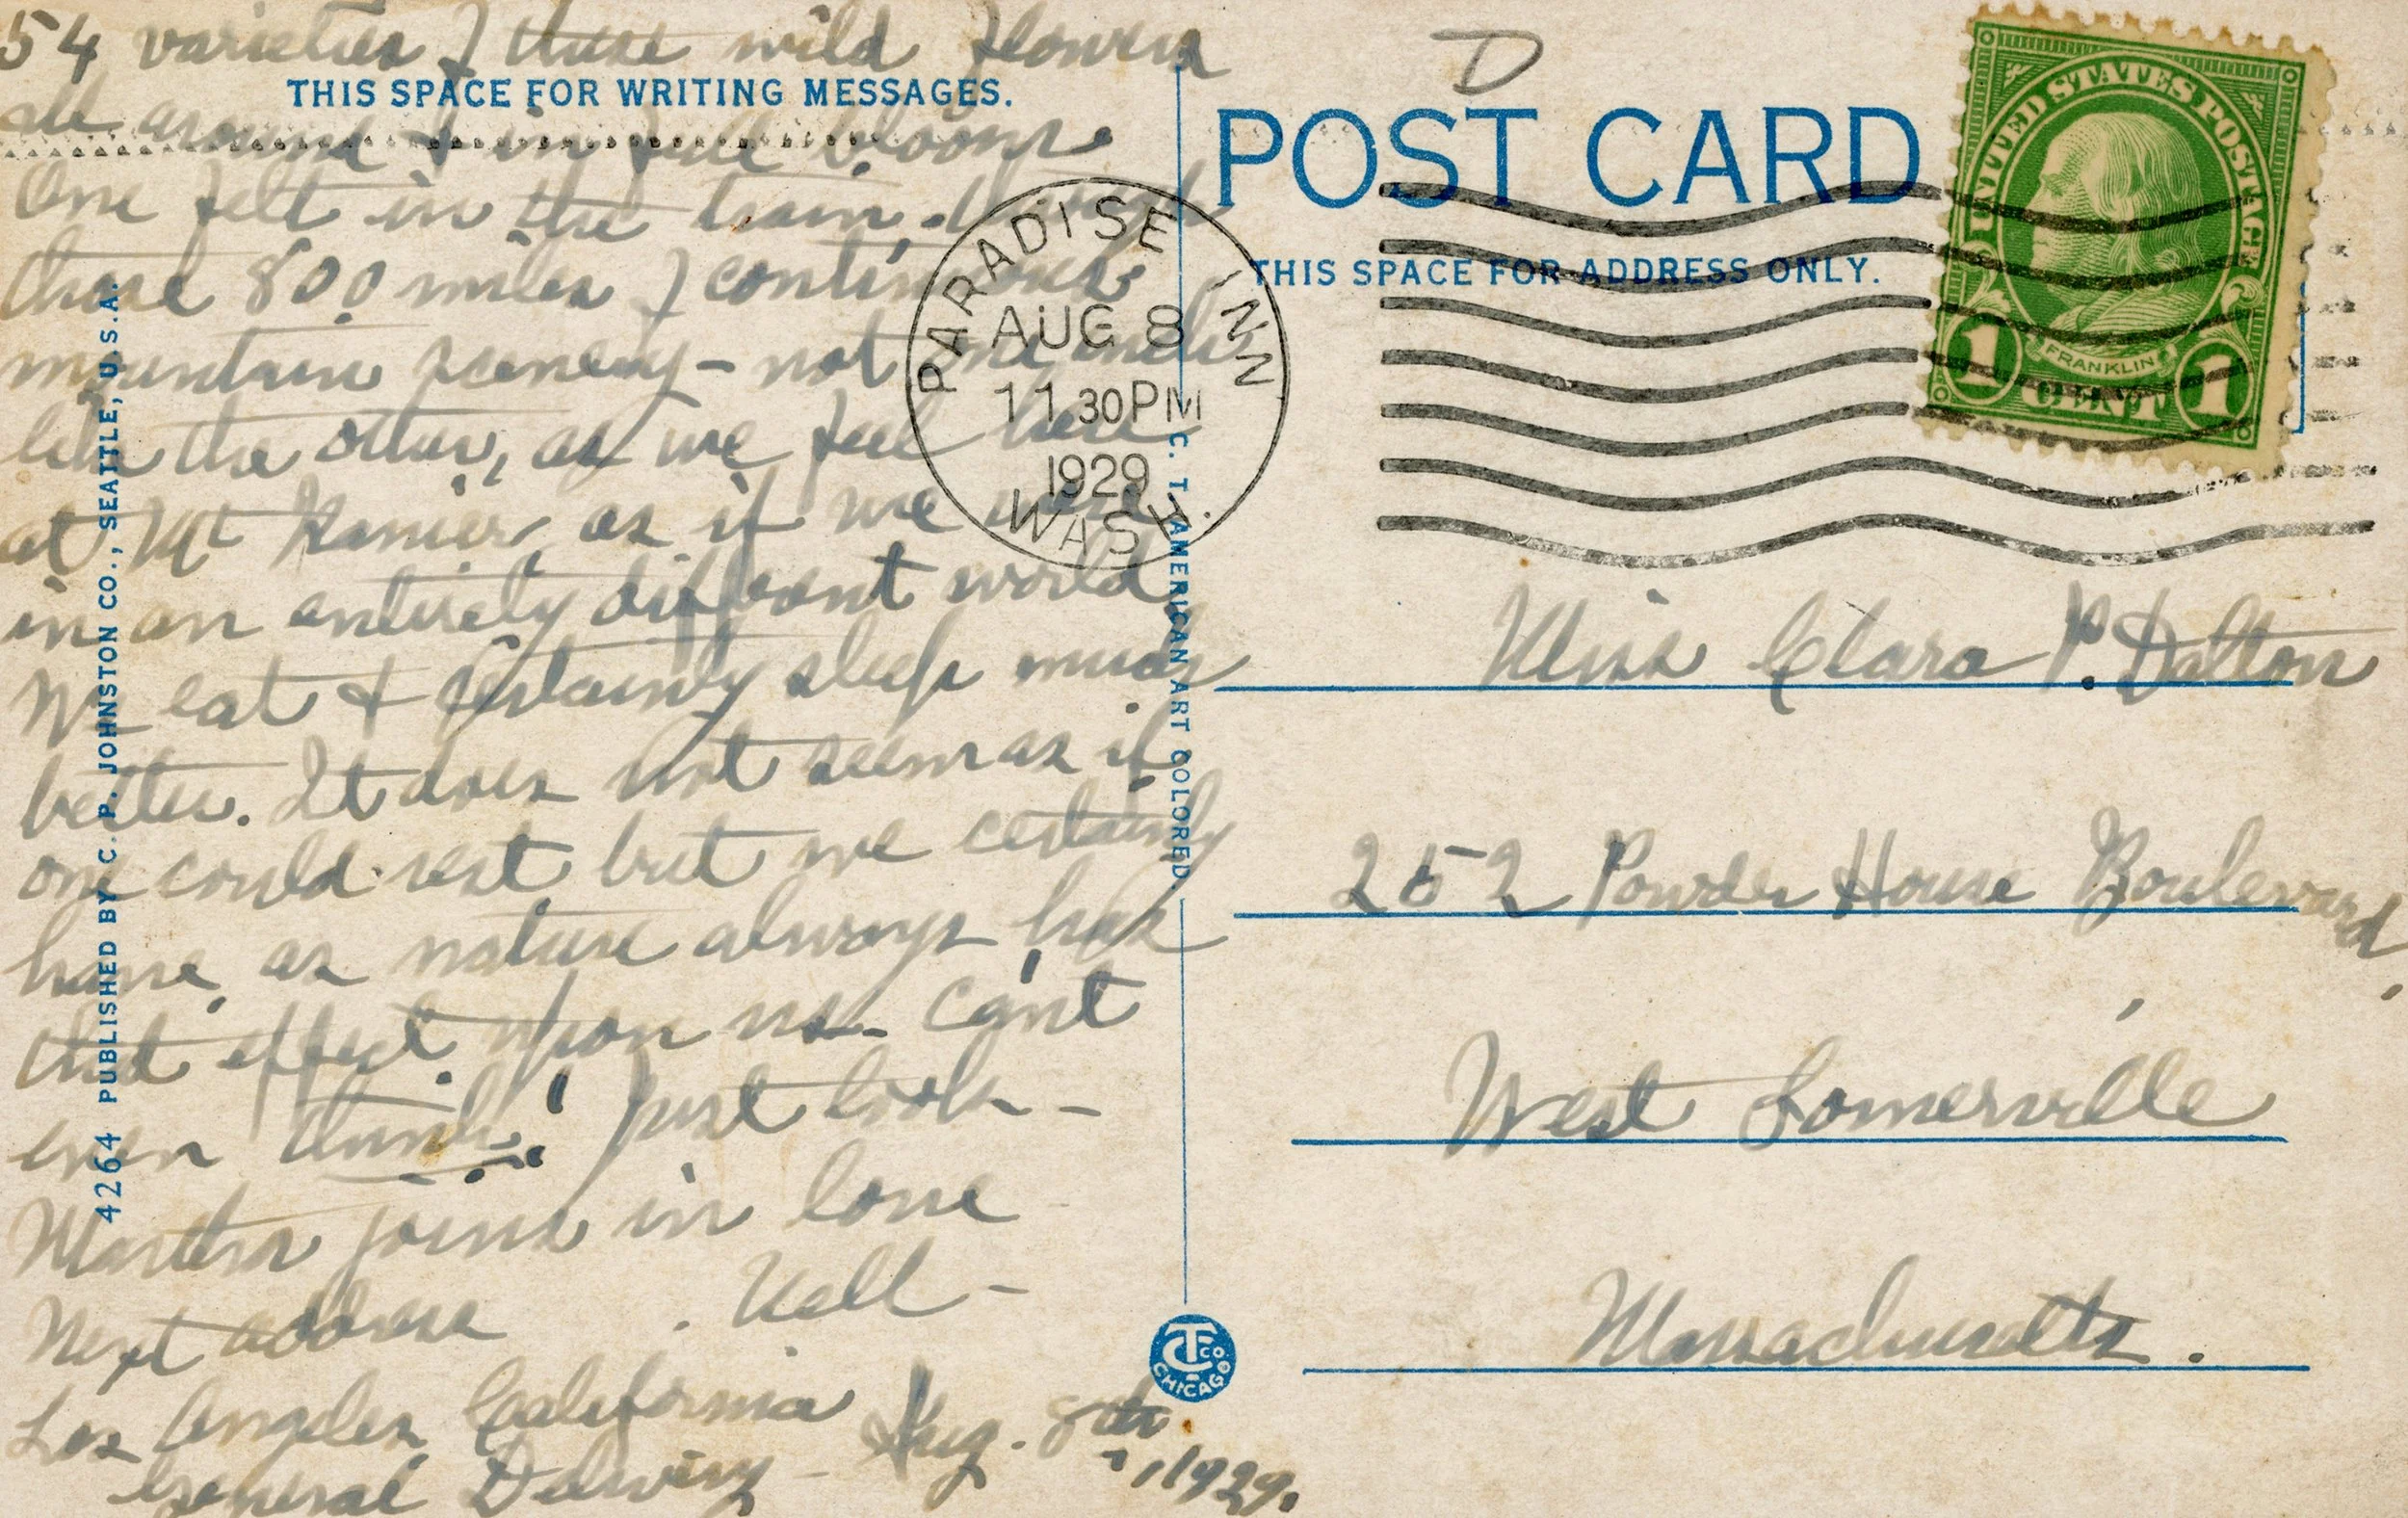 54 varieties of these wild flowers
THIS SPACE FOR WRITING MESSAGES.
all around & in full bloom.
One felt in the train, through
those 800 miles of continuous
mountain scenery - not one mile
like the other, as we feel here
at Mt Ranier, as if we were
in an entirely different world,
We eat & certainly sleep much
better. It does not seem as if
one could rest but we certainly
have, as nature always has
that effect upon us. Can't
even think! Just look -
Martha joins in love
Nell -
Next address
Los Angeles California
General Delivery - Aug. 8th
1929.
4264 PUBLISHED BY C. P. JOHNSTON CO., SEATTLE, U.S.A.
PARADISE INN
AUG 8
11 30 PM
1929
WASH.
C. T. AMERICAN ART COLORED.
CT CO.
CHICAGO
D
POST CARD
THIS SPACE FOR ADDRESS ONLY.
UNITED STATES POSTAGE
FRANKLIN
1 CENT 1
Miss Clara P. Dalton
252 Powder House Boulevard,
West Somerville
Massachusetts.